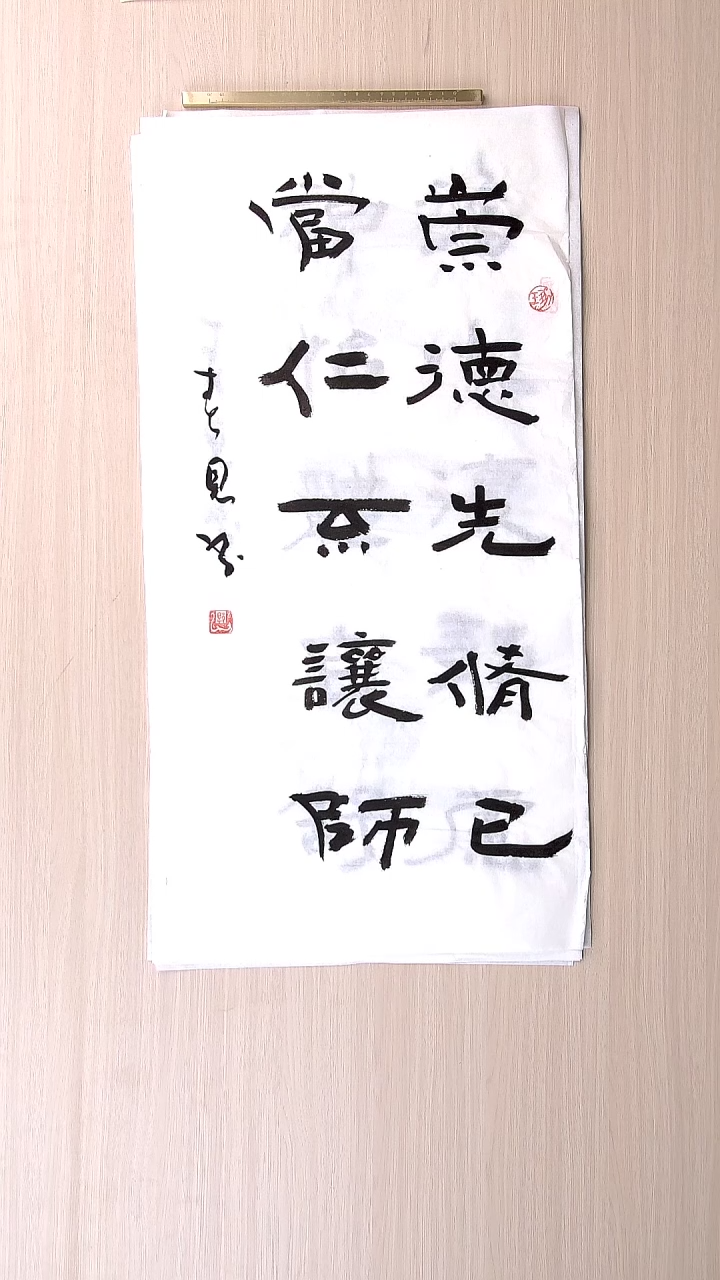 崇德先脩己
當仁不讓師